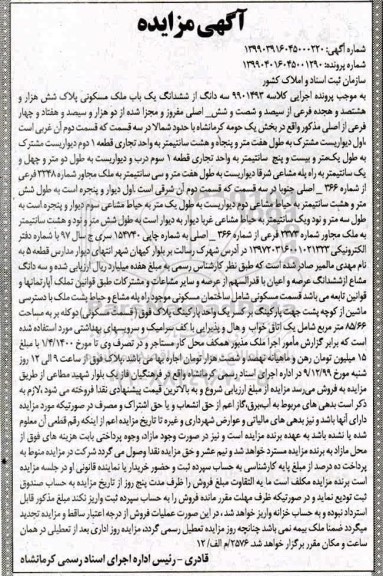 آگهی مزایده
شماره آگهی: ۱۳۹۹۰۳۹۱۶۰۴۵۰۰۰۲۲۰
شماره پرونده: ۱۳۹۹۰۴۰۱۶۰۴۵۰۰۱۲۹۰
سازمان ثبت اسناد و املاک کشور
به موجب پرونده اجرایی کلاسه ۹۹۰۱۴۹۳ سه دانگ از ششدانگ یک باب ملک مسکونی پلاک شش هزار و
هشتصد و هجده فرعی از سیصد و شصت و شش_ اصلی مفروز و مجزا شده از دو هزار و سیصد و هفتاد و چهار
فرعی از اصلی مذکور واقع در بخش یک حومه کرمانشاه با حدود شمالا در سه قسمت که قسمت دوم آن غربی است
،اول دیواریست مشترک به طول هفت متر و پنجاه و هشت سانتیمتر به واحد تجاری قطعه ۱ دوم دیواریست مشترک
به طول یکمتر و بیست و پنج سانتیمتر به واحد تجاری قطعه ۱ سوم درب و دیواریست به طول دو متر و چهل و
یک سانتیمتر به راه پله مشاعی شرقا دیواریست به طول هفت متر و سی سانتیمتر به ملک مجاور شماره ۲۲۴۸ فرعی
از شماره ۳۶۶ _ اصلی جنوبا در سه قسمت که قسمت دوم آن شرقی است ،اول دیوار و پنجره است به طول شش
متر و هشت سانتیمتر به حیاط مشاعی دوم دیواریست به طول یک متر به حیاط مشاعی سوم دیوار و پنجره است به
طول سه متر و نود ویک سانتیمتر به حیاط مشاعی غربا دیوار به دیوار است به طول شش متر و نود و هشت سانتیمتر
به ملک مجاور شماره ۳۳۷۳ فرعی از شماره ۳۶۶ _ اصلی به شماره چاپی ۱۵۴۷۳۰ سری ج سال ۹۷ با شماره دفتر
الکترونیکی ۱۳۹۷۲۰۳۱۶۰۰۱۰۲۱۳۳۳ در آدرس شهرک رسالت بر بلوار کیهان شهر انتهای دیوار مدارس قطعه ۵ به
نام مهدی مالمیر صادر شده است که طبق نظر کارشناس رسمی به مبلغ هفده میلیارد ریال ارزیابی شده و سه دانگ
مشاع ازششدانگ عرصه و اعیان با قدرالسهم از عرصه و سایر مشاعات و مشترکات طبق قوانین تملک آپارتمانها و
قوانین تابعه می باشد قسمت مسکونی شامل ساختمان مسکونی موجود راه پله مشاع و حیاط پشت ملک با دسترسی
ماشین از کوچه پشت جهت پارکینگ بر کسر یک واحد پارکینگ پلاک فوق (قسمت مسکونی) دوکله بر به مساحت
۸۵/۶۶ متر مربع شامل یک اتاق خواب و هال و پذیرایی با کف سرامیک و سرویسهای بهداشتی مورد استفاده شده
است که برابر گزارش مأمور اجرا ملک مذبور همکف محل کار مستاجر و در تصرف وی تا مورخ ۱/۴/۱۴۰۰ با مبلغ
۱۵ میلیون تومان رهن و ماهیانه نهصد و شصت هزار تومان اجاره بها می باشد ،پلاک فوق از ساعت ۹ الی ۱۲ روز
شنبه مورخ ۹/۱۲/۹۹ در اداره اجرای اسناد رسمی کرمانشاه واقع در فرهنگیان فاز یک بلوار شهید مطاعی از طریق
مزایده به فروش می‌رسد مزایده از مبلغ ارزیابی شروع و به بالاترین قیمت پیشنهادی نقدا فروخته می شود ،لازم به
ذکر است بدهی های مربوط به آب،برق،گاز اعم از حق انشعاب و یا حق اشتراک و مصرف در صورتیکه مورد مزایده
دارای آنها باشد و نیز بدهی های مالیاتی و عوارض شهرداری و غیره تا تاریخ مزایده اعم از اینکه رقم قطعی آن معلوم
شده یا نشده باشد به عهده برنده مزایده است و نیز در صورت وجود مازاد، وجوه پرداختی بابت هزینه های فوق از
محل مازاد به برنده مزایده مسترد خواهد شد و نیم عشر و حق مزایده نقدا وصول می گردد شرکت در مزایده منوط به
پرداخت ده درصد از مبلغ پایه کارشناسی به حساب سپرده ثبت و حضور خریدار یا نماینده قانونی او در جلسه مزایده
است برنده مزایده مکلف است ما به التفاوت مبلغ فروش را ظرف مدت پنج روز از تاریخ مزایده به حساب صندوق
ثبت تودیع نماید و در صورتیکه ظرف مهلت مقرر مانده فروش را به حساب سپرده ثبت واریز نکند مبلغ مذکور قابل
استرداد نبوده و به حساب خزانه واریز خواهد شد ، در این صورت عملیات فروش از درجه اعتبار ساقط و مزایده تجدید
میگردد ضمنا ملک بیمه نمی باشد چنانچه روز مزایده تعطیل رسمی گردد، مزایده روز اداری بعد از تعطیلی در همان
ساعت و مکان مقرر برگزار خواهد شد. ۲۵۷۶/م الف/ ۱۲
قادری - رئیس اداره اجرای اسناد رسمی کرمانشاه